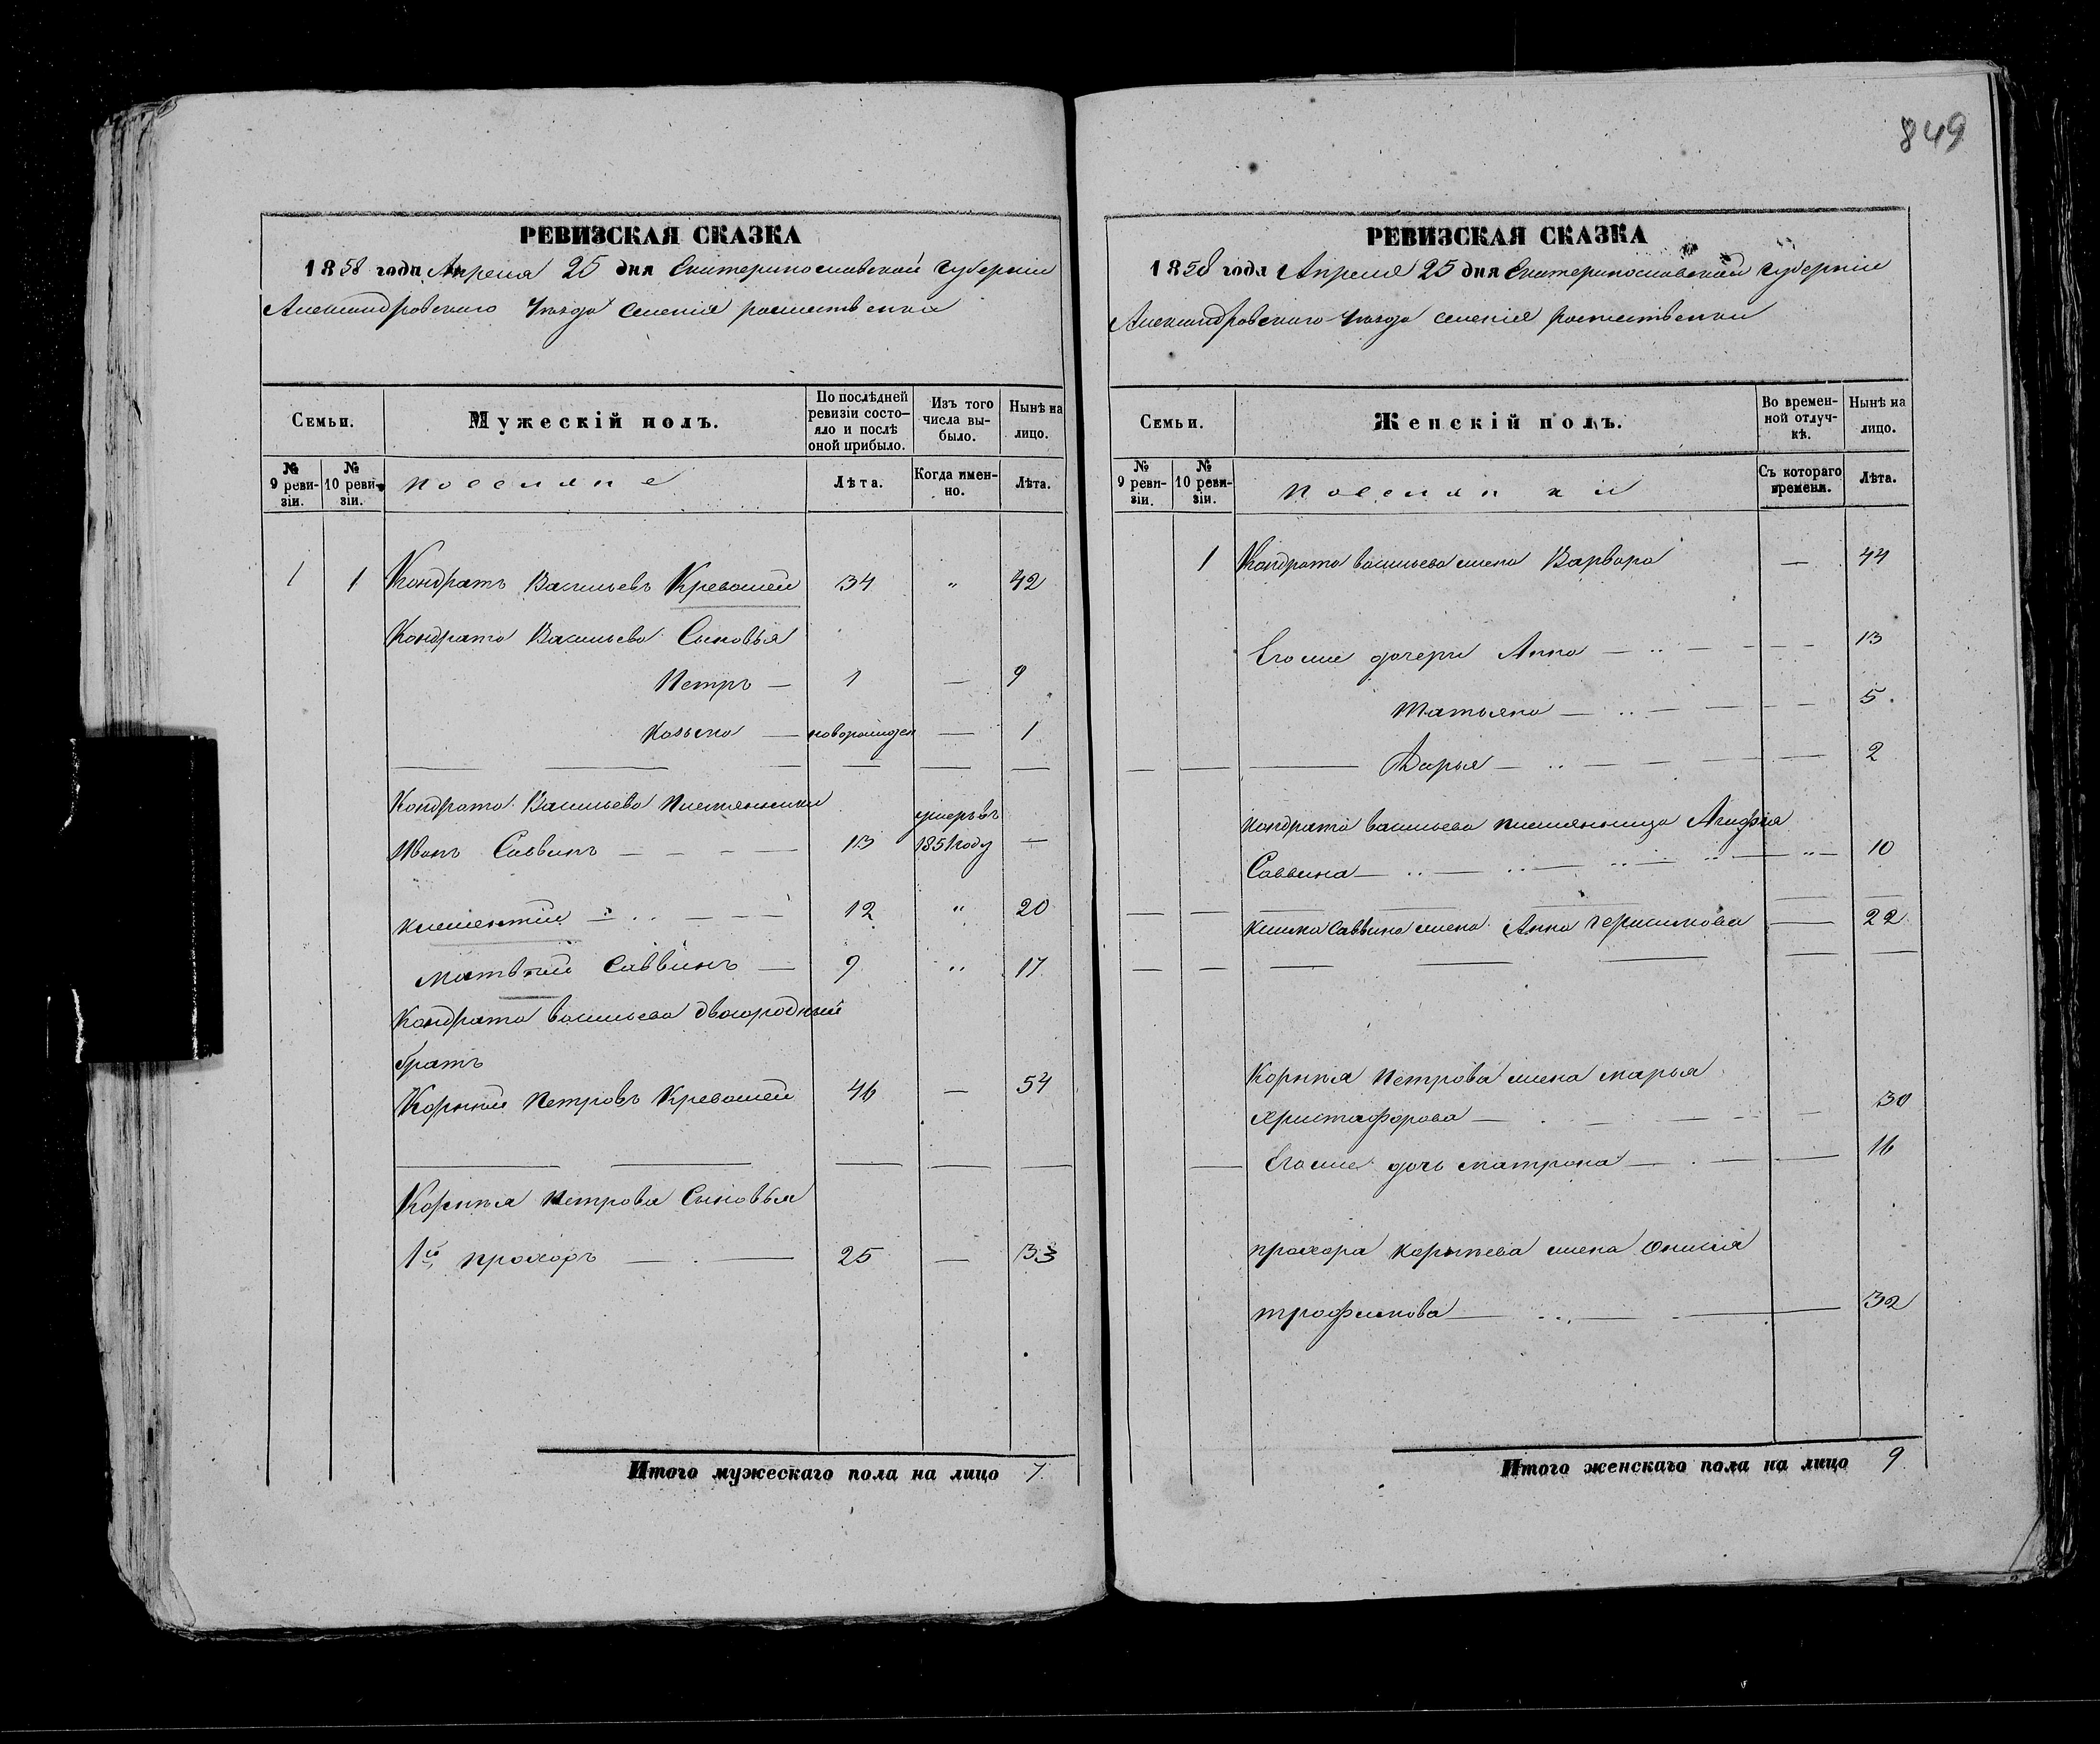 849
РЕВИЗСКАЯ СКАЗКА
1858 года Апреля 25 дня Екатеринославской губернии
Александровского Уѣзда селения рожественки
Семьи.
Мужескій полъ.
По послѣдней ревизіи состо-яло и послѣ оной прибыло.
Изъ того числа вы-было.
Нынѣ на лицо.
№ 9 реви-зіи.
№ 10 реви-зіи.
поселяне
Лѣта.
Когда имен-но.
Лѣта.
1 1 Кондратъ Васильевъ Кревошей 34 " 42
Кондрата Васильева Сыновья
Петръ — 1 — 9
Козьма — новорожден — 1
Кондрата Васильева Племянники
Иванъ Саввинъ — 13 умеръ въ 1851 году —
климентий 12 " 20
матвѣй Саввинъ — 9 " 17
Кондрата васильева двоюродный
братъ
Корнѣй Петровъ Кревошей 46 — 54
Корнѣя Петрова Сыновья
1й прохоръ — 25 — 33
Итого мужескаго пола на лицо 7
РЕВИЗСКАЯ СКАЗКА
1858 года Апреля 25 дня Екатеринославской губернии
Александровского Уѣзда селения рожественки
Семьи.
Женскій полъ.
Во времен-ной отлуч-кѣ.
Нынѣ на лицо.
№ 9 реви-зіи.
№ 10 реви-зіи.
поселянки
Съ котораго времени.
Лѣта.
1 Кондрата васильева жена Варвара — 44
Егоже дочери Анна — 13
Татьяна — 5
Дарья — 2
кондрата васильева племянница Агафія
Саввина — 10
Клима Саввина жена Анна Герасимова — 22
Корнѣя Петрова жена марья
христофорова — 30
Егоже дочь матрона — 16
прохора корнѣева жена
трофимова — 32
Итого женскаго пола на лицо 9